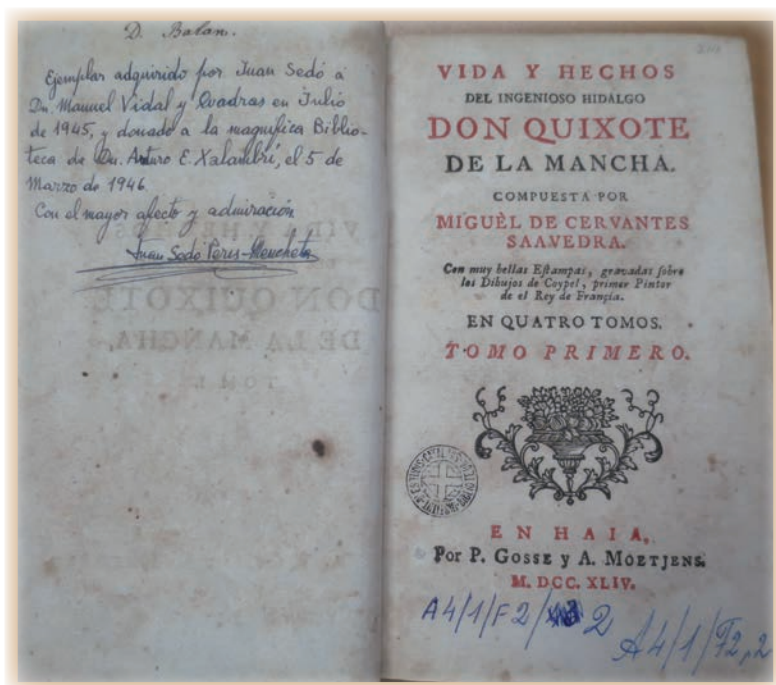 D. Balan.
Ejemplar adquirido por Juan Sedó a
Dn. Manuel Vidal y Quadras en Julio
de 1945, y donado a la magnífica Biblio-
teca de Dn. Arturo E. Xalambrí, el 5 de
Marzo de 1946.
Con el mayor afecto y admiración
Juan Sedó Peris-Mencheta
VIDA Y HECHOS
DEL INGENIOSO HIDALGO
DON QUIXOTE
DE LA MANCHA.
COMPUESTA POR
MIGUÈL DE CERVANTES
SAAVEDRA.
Con muy bellas Estampas, gravadas sobre
los Dibujos de Coypel, primer Pintor
de el Rey de Françia.
EN QUATRO TOMOS.
TOMO PRIMERO.
EN HAIA,
Por P. Gosse y A. Moetjens.
M. DCC. XLIV.
A4/1/F2/ 2
A4/1/F2,2